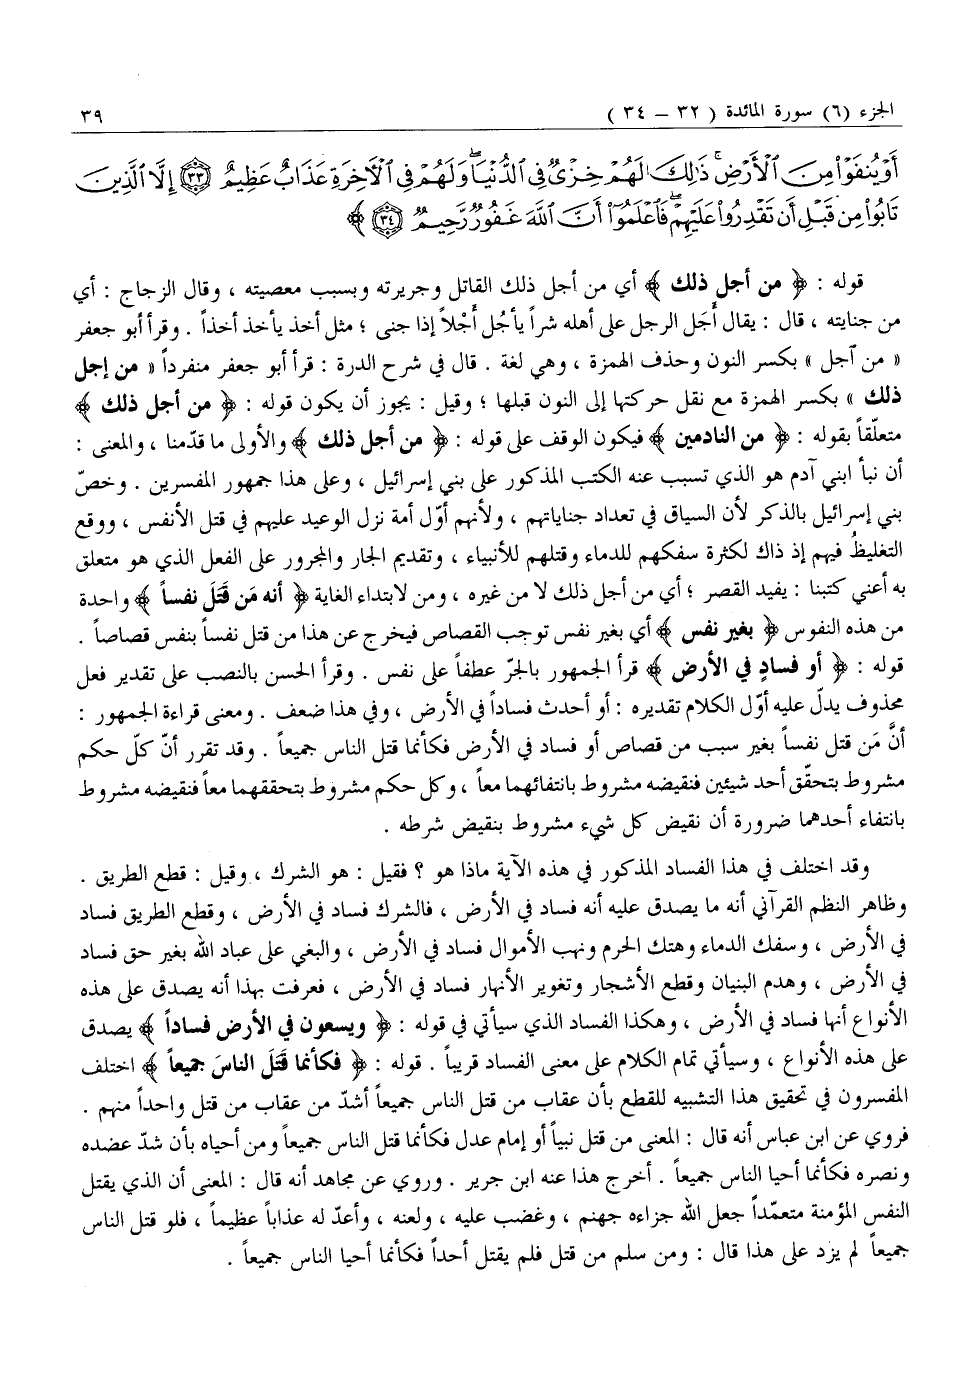 الجزء (٦) سورة المائدة ( ٣٢ – ٣٤ ) ٣٩
أَوْ يُنفَوْا مِنَ الْأَرْضِ ذَٰلِكَ لَهُمْ خِزْيٌ فِي الدُّنْيَا وَلَهُمْ فِي الْآخِرَةِ عَذَابٌ عَظِيمٌ (٣٣) إِلَّا الَّذِينَ
تَابُوا مِن قَبْلِ أَن تَقْدِرُوا عَلَيْهِمْ فَاعْلَمُوا أَنَّ اللَّهَ غَفُورٌ رَّحِيمٌ (٣٤) ﴾
قوله : ﴿ من أجل ذلك ﴾ أي من أجل ذلك القاتل وجريرته وبسبب معصيته ، وقال الزجاج : أي
من جنايته ، قال : يقال أَجَل الرجل على أهله شراً يأجُل أَجْلاً إذا جنى ؛ مثل أخذ يأخذ أخذاً . وقرأ أبو جعفر
« من آجل » بكسر النون وحذف الهمزة ، وهي لغة . قال في شرح الدرة : قرأ أبو جعفر منفرداً « من إجل
ذلك » بكسر الهمزة مع نقل حركتها إلى النون قبلها ؛ وقيل : يجوز أن يكون قوله : ﴿ من أجل ذلك ﴾
متعلّقاً بقوله : ﴿ من النادمين ﴾ فيكون الوقف على قوله : ﴿ من أجل ذلك ﴾ والأولى ما قدّمنا ، والمعنى :
أن نبأ ابني آدم هو الذي تسبب عنه الكتب المذكور على بني إسرائيل ، وعلى هذا جمهور المفسرين . وخصّ
بني إسرائيل بالذكر لأن السياق في تعداد جناياتهم ، ولأنهم أوّل أمة نزل الوعيد عليهم في قتل الأنفس ، ووقع
التغليظُ فيهم إذ ذاك لكثرة سفكهم للدماء وقتلهم للأنبياء ، وتقديم الجار والمجرور على الفعل الذي هو متعلق
به أعني كتبنا : يفيد القصر ؛ أي من أجل ذلك لا من غيره ، ومن لابتداء الغاية ﴿ أنه مَن قَتَلَ نفساً ﴾ واحدة
من هذه النفوس ﴿ بغير نفس ﴾ أي بغير نفس توجب القصاص فيخرج عن هذا من قتل نفساً بنفس قصاصاً .
قوله : ﴿ أو فسادٍ في الأرض ﴾ قرأ الجمهور بالجرّ عطفاً على نفس . وقرأ الحسن بالنصب على تقدير فعل
محذوف يدلّ عليه أوّل الكلام تقديره : أو أحدث فساداً في الأرض ، وفي هذا ضعف . ومعنى قراءة الجمهور :
أنَّ مَن قتل نفساً بغير سبب من قصاص أو فساد في الأرض فكأنما قتل الناس جميعاً . وقد تقرر أنّ كلّ حكم
مشروط بتحقّق أحد شيئين فنقيضه مشروط بانتفائهما معاً ، وكل حكم مشروط بتحققهما معاً فنقيضه مشروط
بانتفاء أحدهما ضرورة أن نقيض كل شيء مشروط بنقيض شرطه .
وقد اختلف في هذا الفساد المذكور في هذه الآية ماذا هو ؟ فقيل : هو الشرك ، وقيل : قطع الطريق .
وظاهر النظم القرآني أنه ما يصدق عليه أنه فساد في الأرض ، فالشرك فساد في الأرض ، وقطع الطريق فساد
في الأرض ، وسفك الدماء وهتك الحرم ونهب الأموال فساد في الأرض ، والبغي على عباد الله بغير حق فساد
في الأرض ، وهدم البنيان وقطع الأشجار وتغوير الأنهار فساد في الأرض ، فعرفت بهذا أنه يصدق على هذه
الأنواع أنها فساد في الأرض ، وهكذا الفساد الذي سيأتي في قوله : ﴿ ويسعون في الأرض فساداً ﴾ يصدق
على هذه الأنواع ، وسيأتي تمام الكلام على معنى الفساد قريباً . قوله : ﴿ فكأنما قَتَلَ الناسَ جميعاً ﴾ اختلف
المفسرون في تحقيق هذا التشبيه للقطع بأن عقاب من قتل الناس جميعاً أشدّ من عقاب من قتل واحداً منهم .
فروي عن ابن عباس أنه قال : المعنى من قتل نبياً أو إمام عدل فكأنما قتل الناس جميعاً ومن أحياه بأن شدّ عضده
ونصره فكأنما أحيا الناس جميعاً . أخرج هذا عنه ابن جرير . وروي عن مجاهد أنه قال : المعنى أن الذي يقتل
النفس المؤمنة متعمّداً جعل الله جزاءه جهنم ، وغضب عليه ، ولعنه ، وأعدّ له عذاباً عظيماً ، فلو قتل الناس
جميعاً لم يزد على هذا قال : ومن سلم من قتل فلم يقتل أحداً فكأنما أحيا الناس جميعاً .